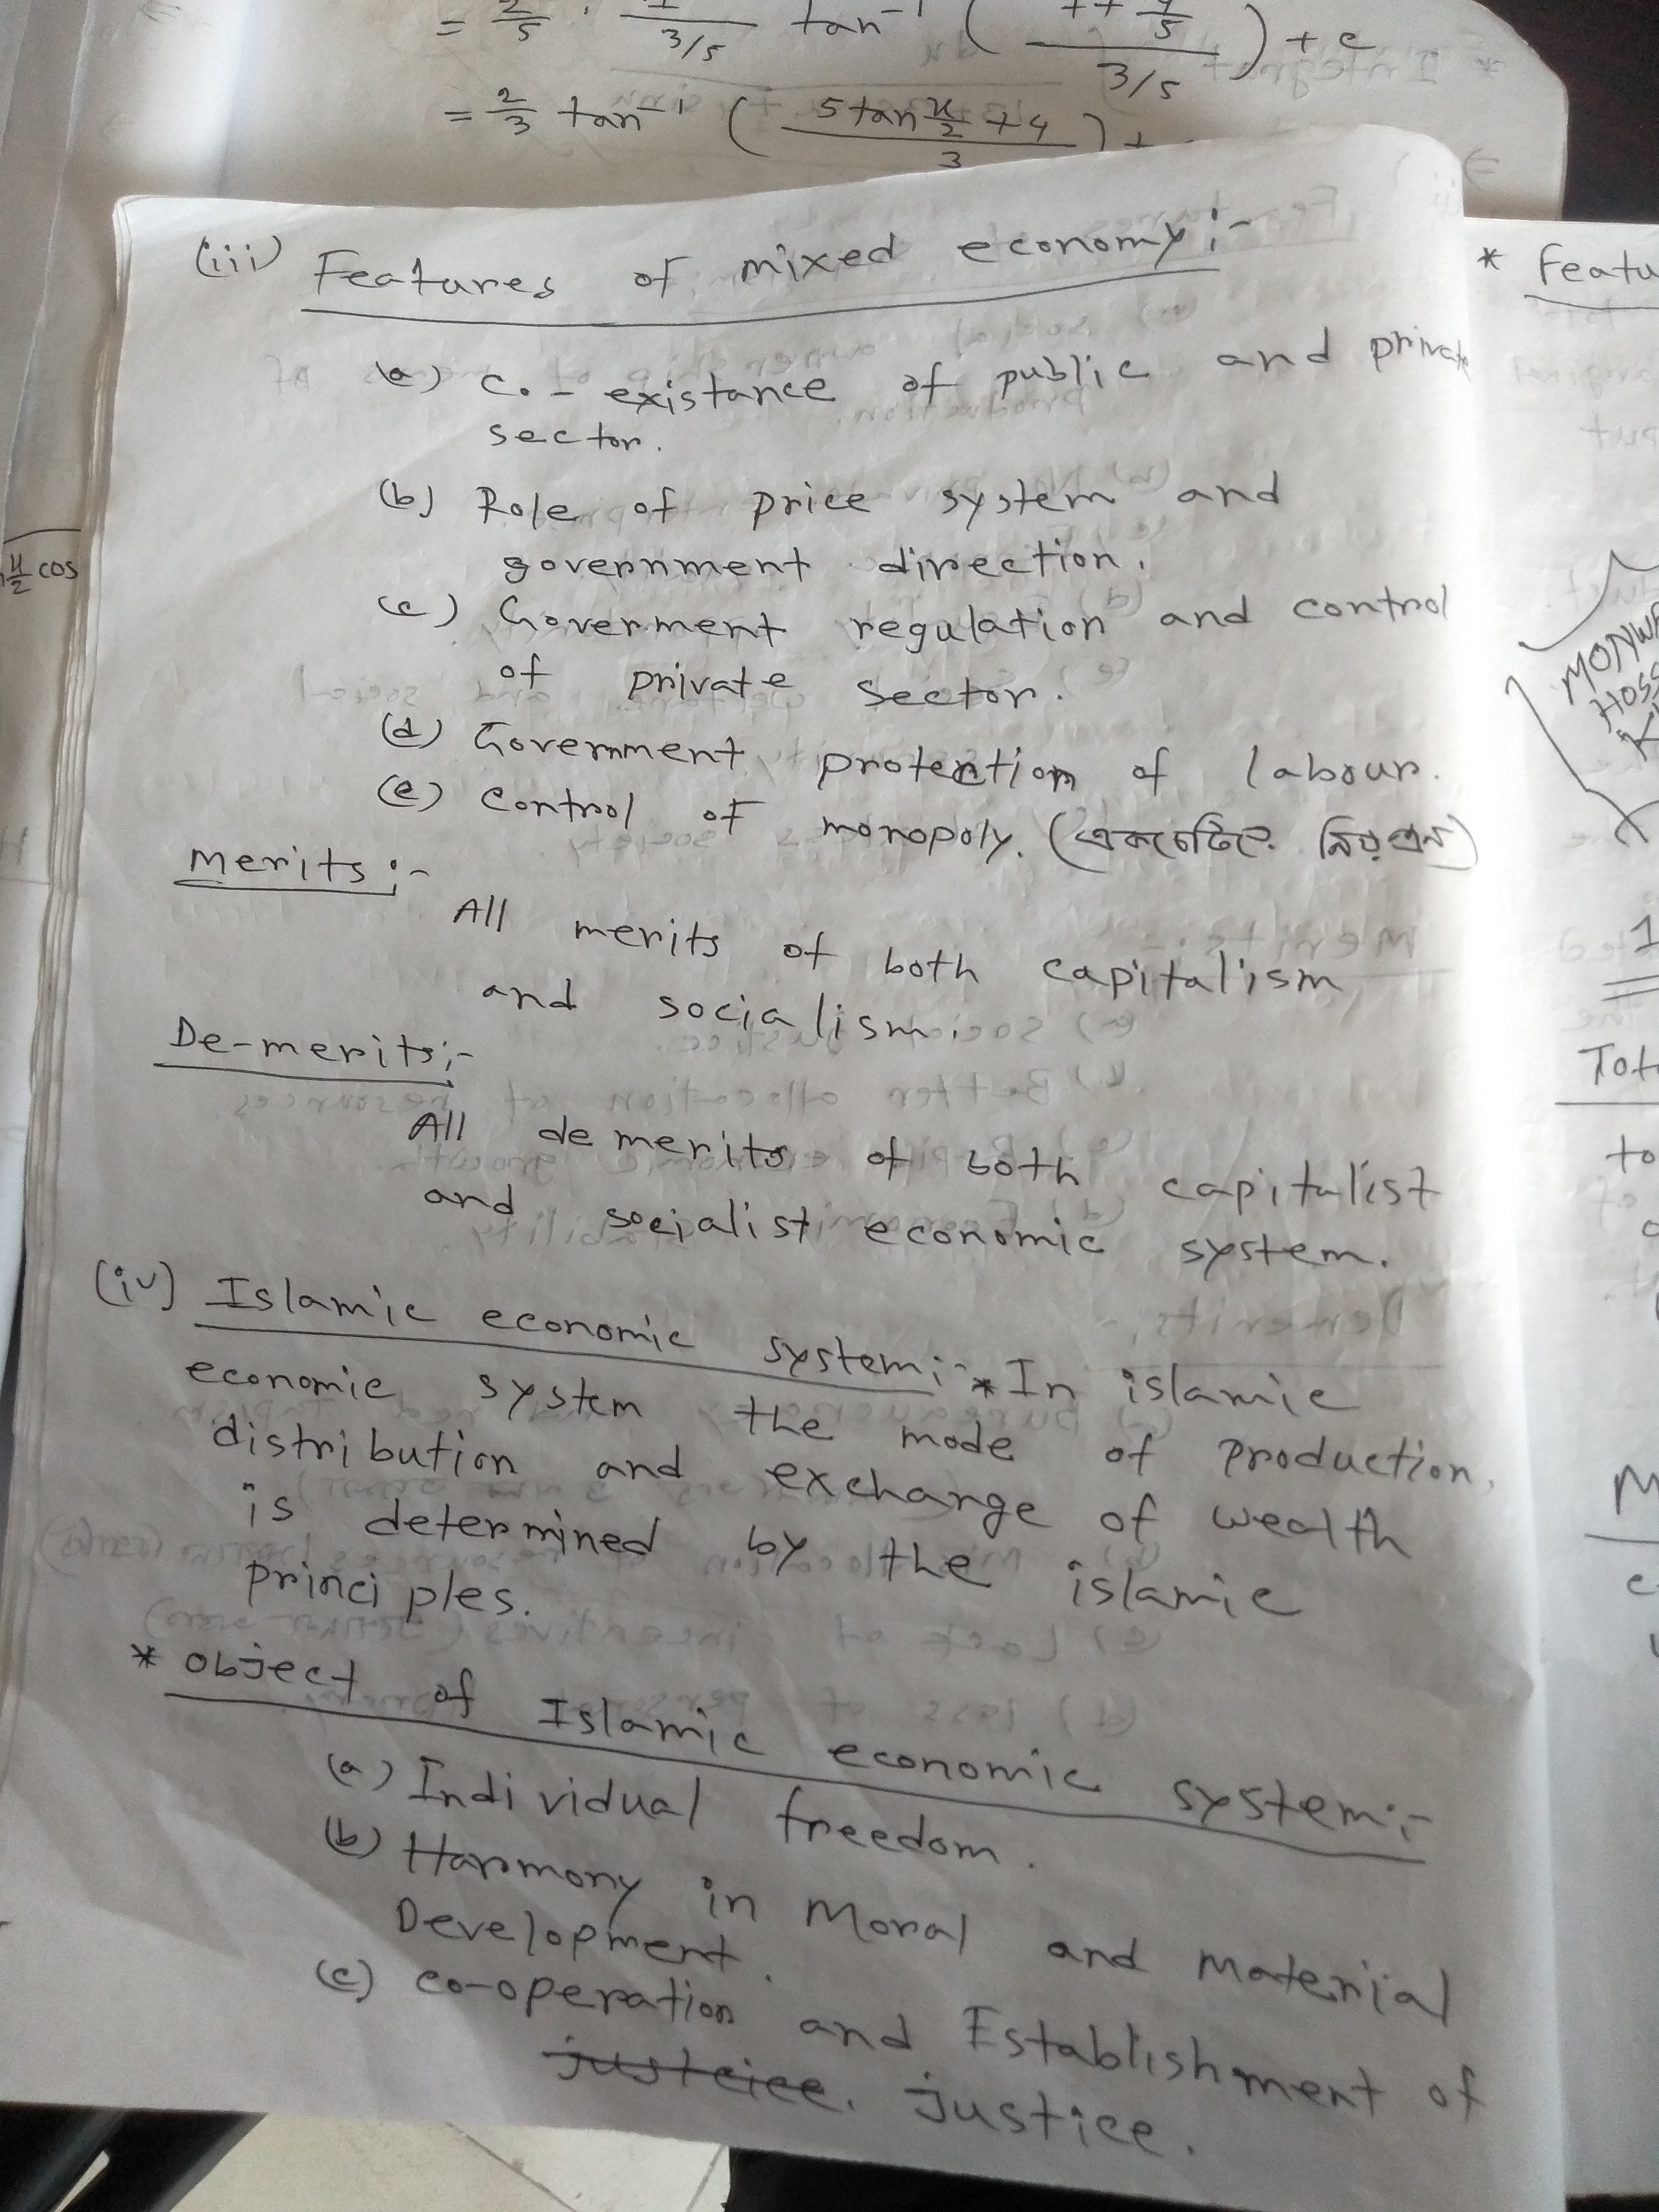 = 2/5 · 1/(3/5) tan⁻¹ ( / 3/5 ) + c
= 2/3 tan⁻¹ ( (5 tan x/2 + 4) / 3 ) +
(iii) Features of mixed economy :-
(a) Co-existance of public and private
sector.
(b) Role of price system and
government direction.
(c) Goverment regulation and control
of private sector.
(d) Government protection of labour.
(e) control of monopoly. (
merits :-
All merits of both capitalism
and socialism.
De-merits :-
All demerits of both capitalist
and socialist economic system.
(iv) Islamic economic system :- * In islamic
economic system the mode of production,
distribution and exchange of wealth
is determined by the islamic
principles.
* object of Islamic economic system :-
(a) Individual freedom.
(b) Harmony in Moral and Material
Development.
(c) co-operation and Establishment of
justeice. justice.
x/2 cos
* Featu
MONW
HOSS
1
Tot
to
M